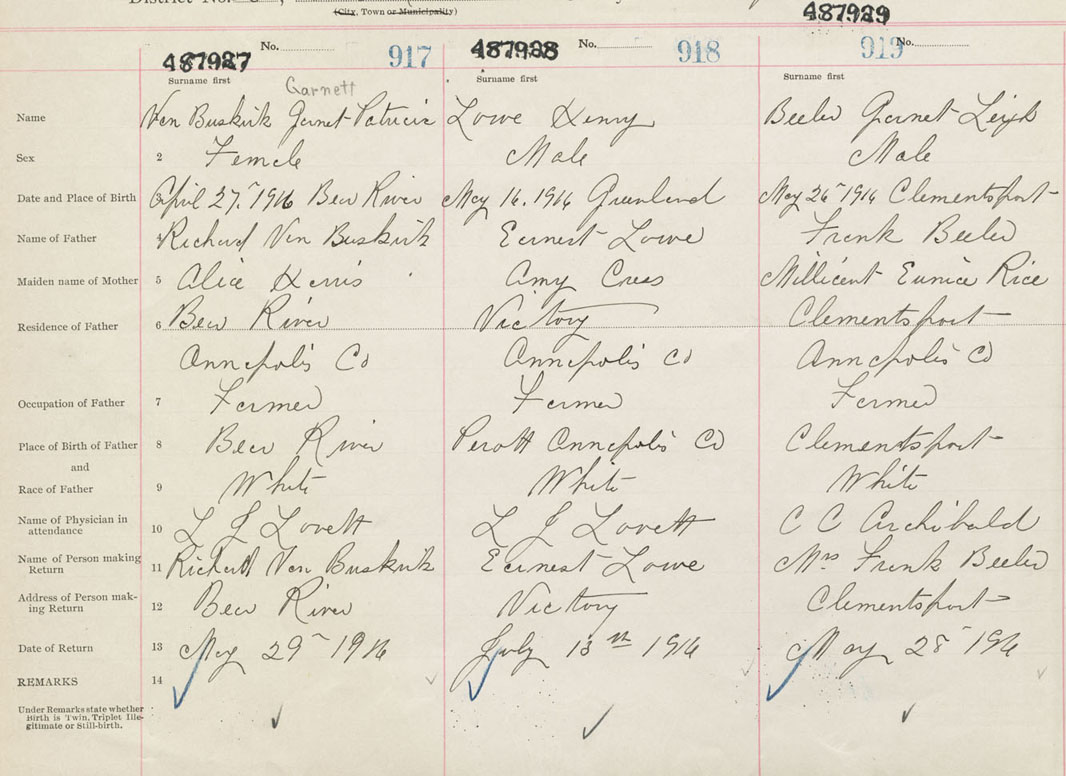 (City, Town or Municipality)
487927 No. 917 487928 No. 918 487929 919 No.
Surname first Surname first Surname first
Garnett
Name Van Buskirk Garnet Patricia Lowe Henry Beeler Garnet Leigh
Sex 2 Female Male Male
Date and Place of Birth April 27, 1916 Bear River May 16. 1916 Greenland May 26 1916 Clementsport
Name of Father 4 Richard Van Buskirk Earnest Lowe Frank Beeler
Maiden name of Mother 5 Alice Harris Amy Millicent Eunice Rice
Residence of Father 6 Bear River Victory Clementsport
Annapolis Co Annapolis Co Annapolis Co
Occupation of Father 7 Farmer Farmer Farmer
Place of Birth of Father 8 Bear River Annapolis Co Clementsport
and
Race of Father 9 White White White
Name of Physician in attendance 10 L J Lovett L J Lovett C C Archibald
Name of Person making Return 11 Richard Van Buskirk Earnest Lowe Mrs Frank Beeler
Address of Person mak-ing Return 12 Bear River Victory Clementsport
Date of Return 13 May 29 1916 July 13th 1916 May 28 1916
REMARKS 14
Under Remarks state whether
Birth is Twin, Triplet Ille-
gitimate or Still-birth.